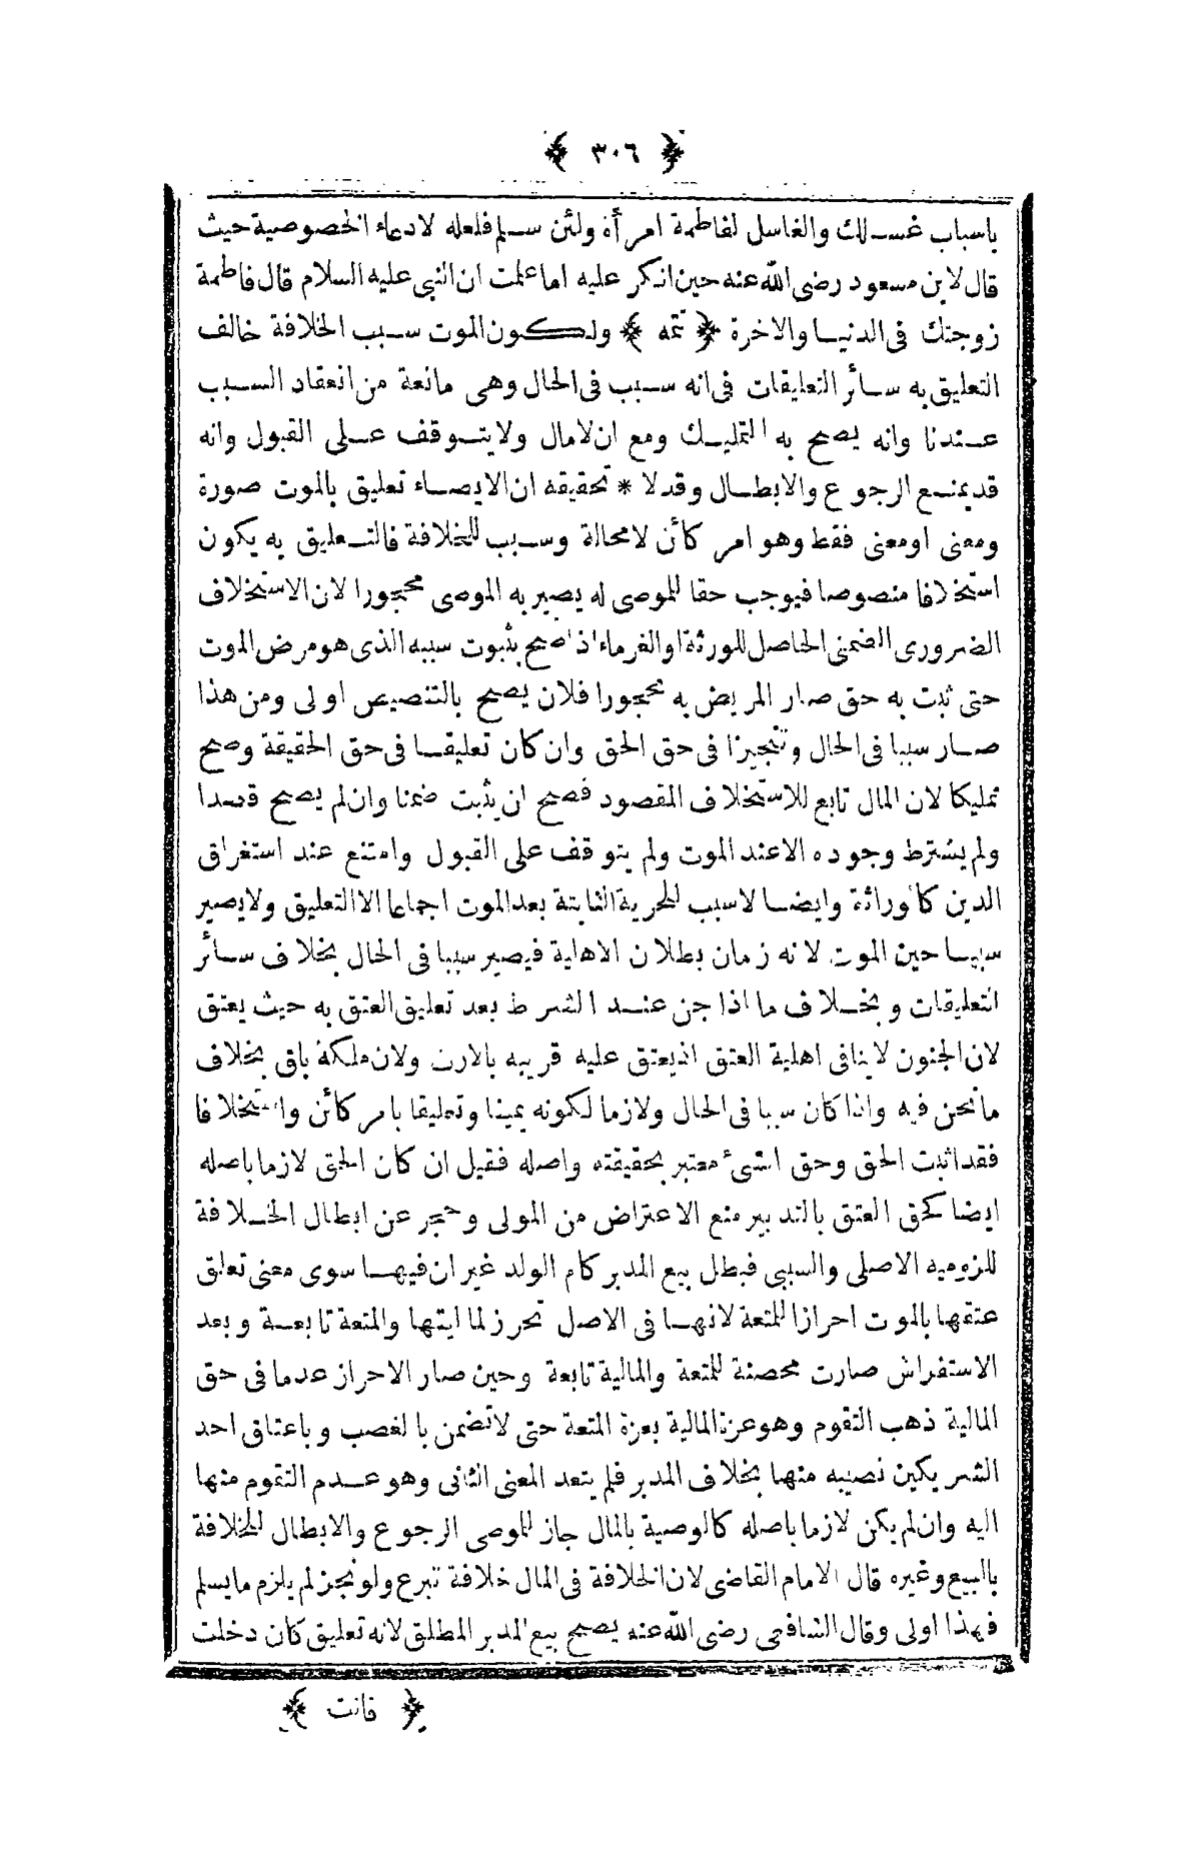 ﴿ ٣٠٦ ﴾
باسباب غسلك والغاسل لفاطمة امرأة ولئن سلم فلعله لادعاء الخصوصية حيث
قال لابن مسعود رضى الله عنه حين انكر عليه اما علمت ان النبى عليه السلام قال فاطمة
زوجتك فى الدنيا والاخرة ﴿ تمه ﴾ ولكون الموت سبب الخلافة خالف
التعليق به سائر التعليقات فى انه سبب فى الحال وهى مانعة من انعقاد السبب
عندنا وانه يصح به التمليك ومع ان لامال ولا يتوقف على القبول وانه
قد يمنع الرجوع والابطال وقد لا * تحقيقه ان الايصاء تعليق بالموت صورة
ومعنى او معنى فقط وهو امر كائن لا محالة وسبب للخلافة فالتعليق به يكون
استخلافا منصوصا فيوجب حقا للموصى له يصير به الموصى محجورا لان الاستخلاف
الضرورى الضمنى الحاصل للورثة او الغرماء اذا صح بثبوت سببه الذى هو مرض الموت
حتى ثبت به حق صار المريض به محجورا فلان يصح بالتنصيص اولى ومن هذا
صار سببا فى الحال وتنجيزا فى حق الحق وان كان تعليقا فى حق الحقيقة وصح
تمليكا لان المال تابع للاستخلاف المقصود فصح ان يثبت ضمنا وان لم يصح قصدا
ولم يشترط وجوده الا عند الموت ولم يتوقف على القبول وامتنع عند استغراق
الدين كالوراثة وايضا لاسبب للحرية الثابتة بعد الموت اجماعا الا التعليق ولا يصير
سببا حين الموت لانه زمان بطلان الاهلية فيصير سببا فى الحال بخلاف سائر
التعليقات وبخلاف ما اذا جن عند الشرط بعد تعليق العتق به حيث يعتق
لان الجنون لا ينافى اهلية العتق اذ يعتق عليه قريبه بالارث ولان ملكه باق بخلاف
ما نحن فيه واذا كان سببا فى الحال ولازما لكونه يمينا وتعليقا بامر كائن واستخلافا
فقد اثبت الحق وحق الشئ معتبر بحقيقته واصله فقيل ان كان الحق لازما باصله
ايضا كحق العتق بالتدبير منع الاعتراض من المولى وحجر عن ابطال الخلافة
للزوميه الاصلى والسببى فبطل بيع المدبر كام الولد غير ان فيها سوى معنى تعلق
عتقها بالموت احرازا للمتعة لانها فى الاصل تحرز لماليتها والمتعة تابعة وبعد
الاستفراش صارت محصنة للمتعة والمالية تابعة وحين صار الاحراز عدما فى حق
المالية ذهب التقوم وهو عزة المالية بعزة المتعة حتى لا تضمن بالغصب وباعتاق احد
الشريكين نصيبه منها بخلاف المدبر فلم يتعد المعنى الثانى وهو عدم التقوم منها
اليه وان لم يكن لازما باصله كالوصية بالمال جاز للموصى الرجوع والابطال للخلافة
بالبيع وغيره قال الامام القاضى لان الخلافة فى المال خلافة تبرع ولو نجز لم يلزم ما يسلم
فهذا اولى وقال الشافعى رضى الله عنه يصح بيع المدبر المطلق لانه تعليق كان دخلت
﴿ فانت ﴾